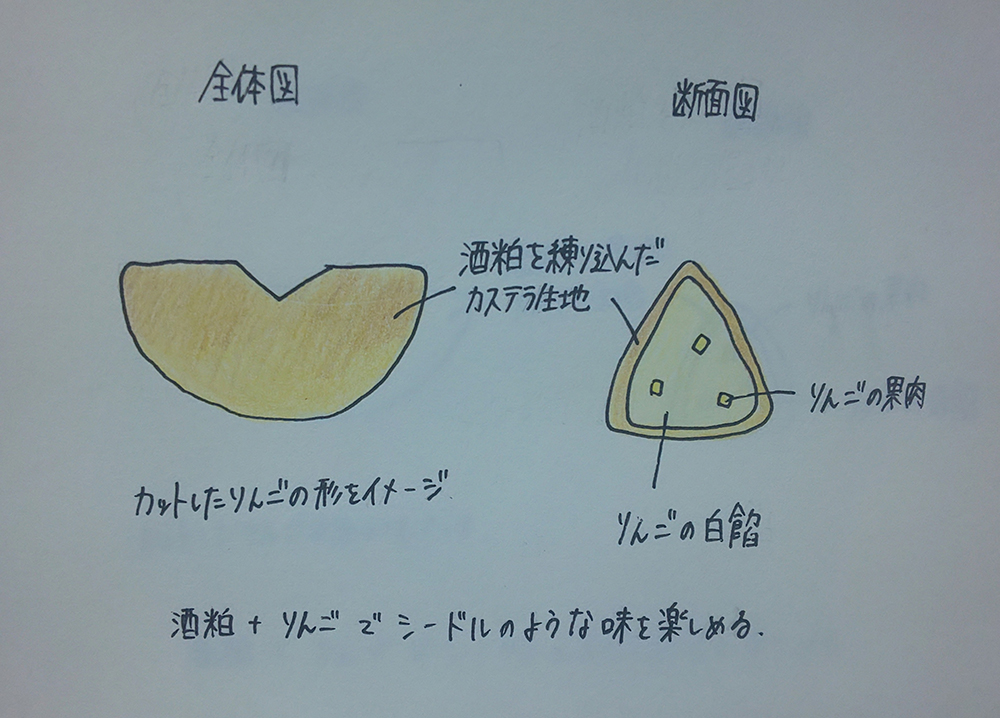 全体図
断面図
酒粕を練り込んだ
カステラ生地
りんごの果肉
カットしたりんごの形をイメージ
りんごの白餡
酒粕+りんごでシードルのような味を楽しめる.